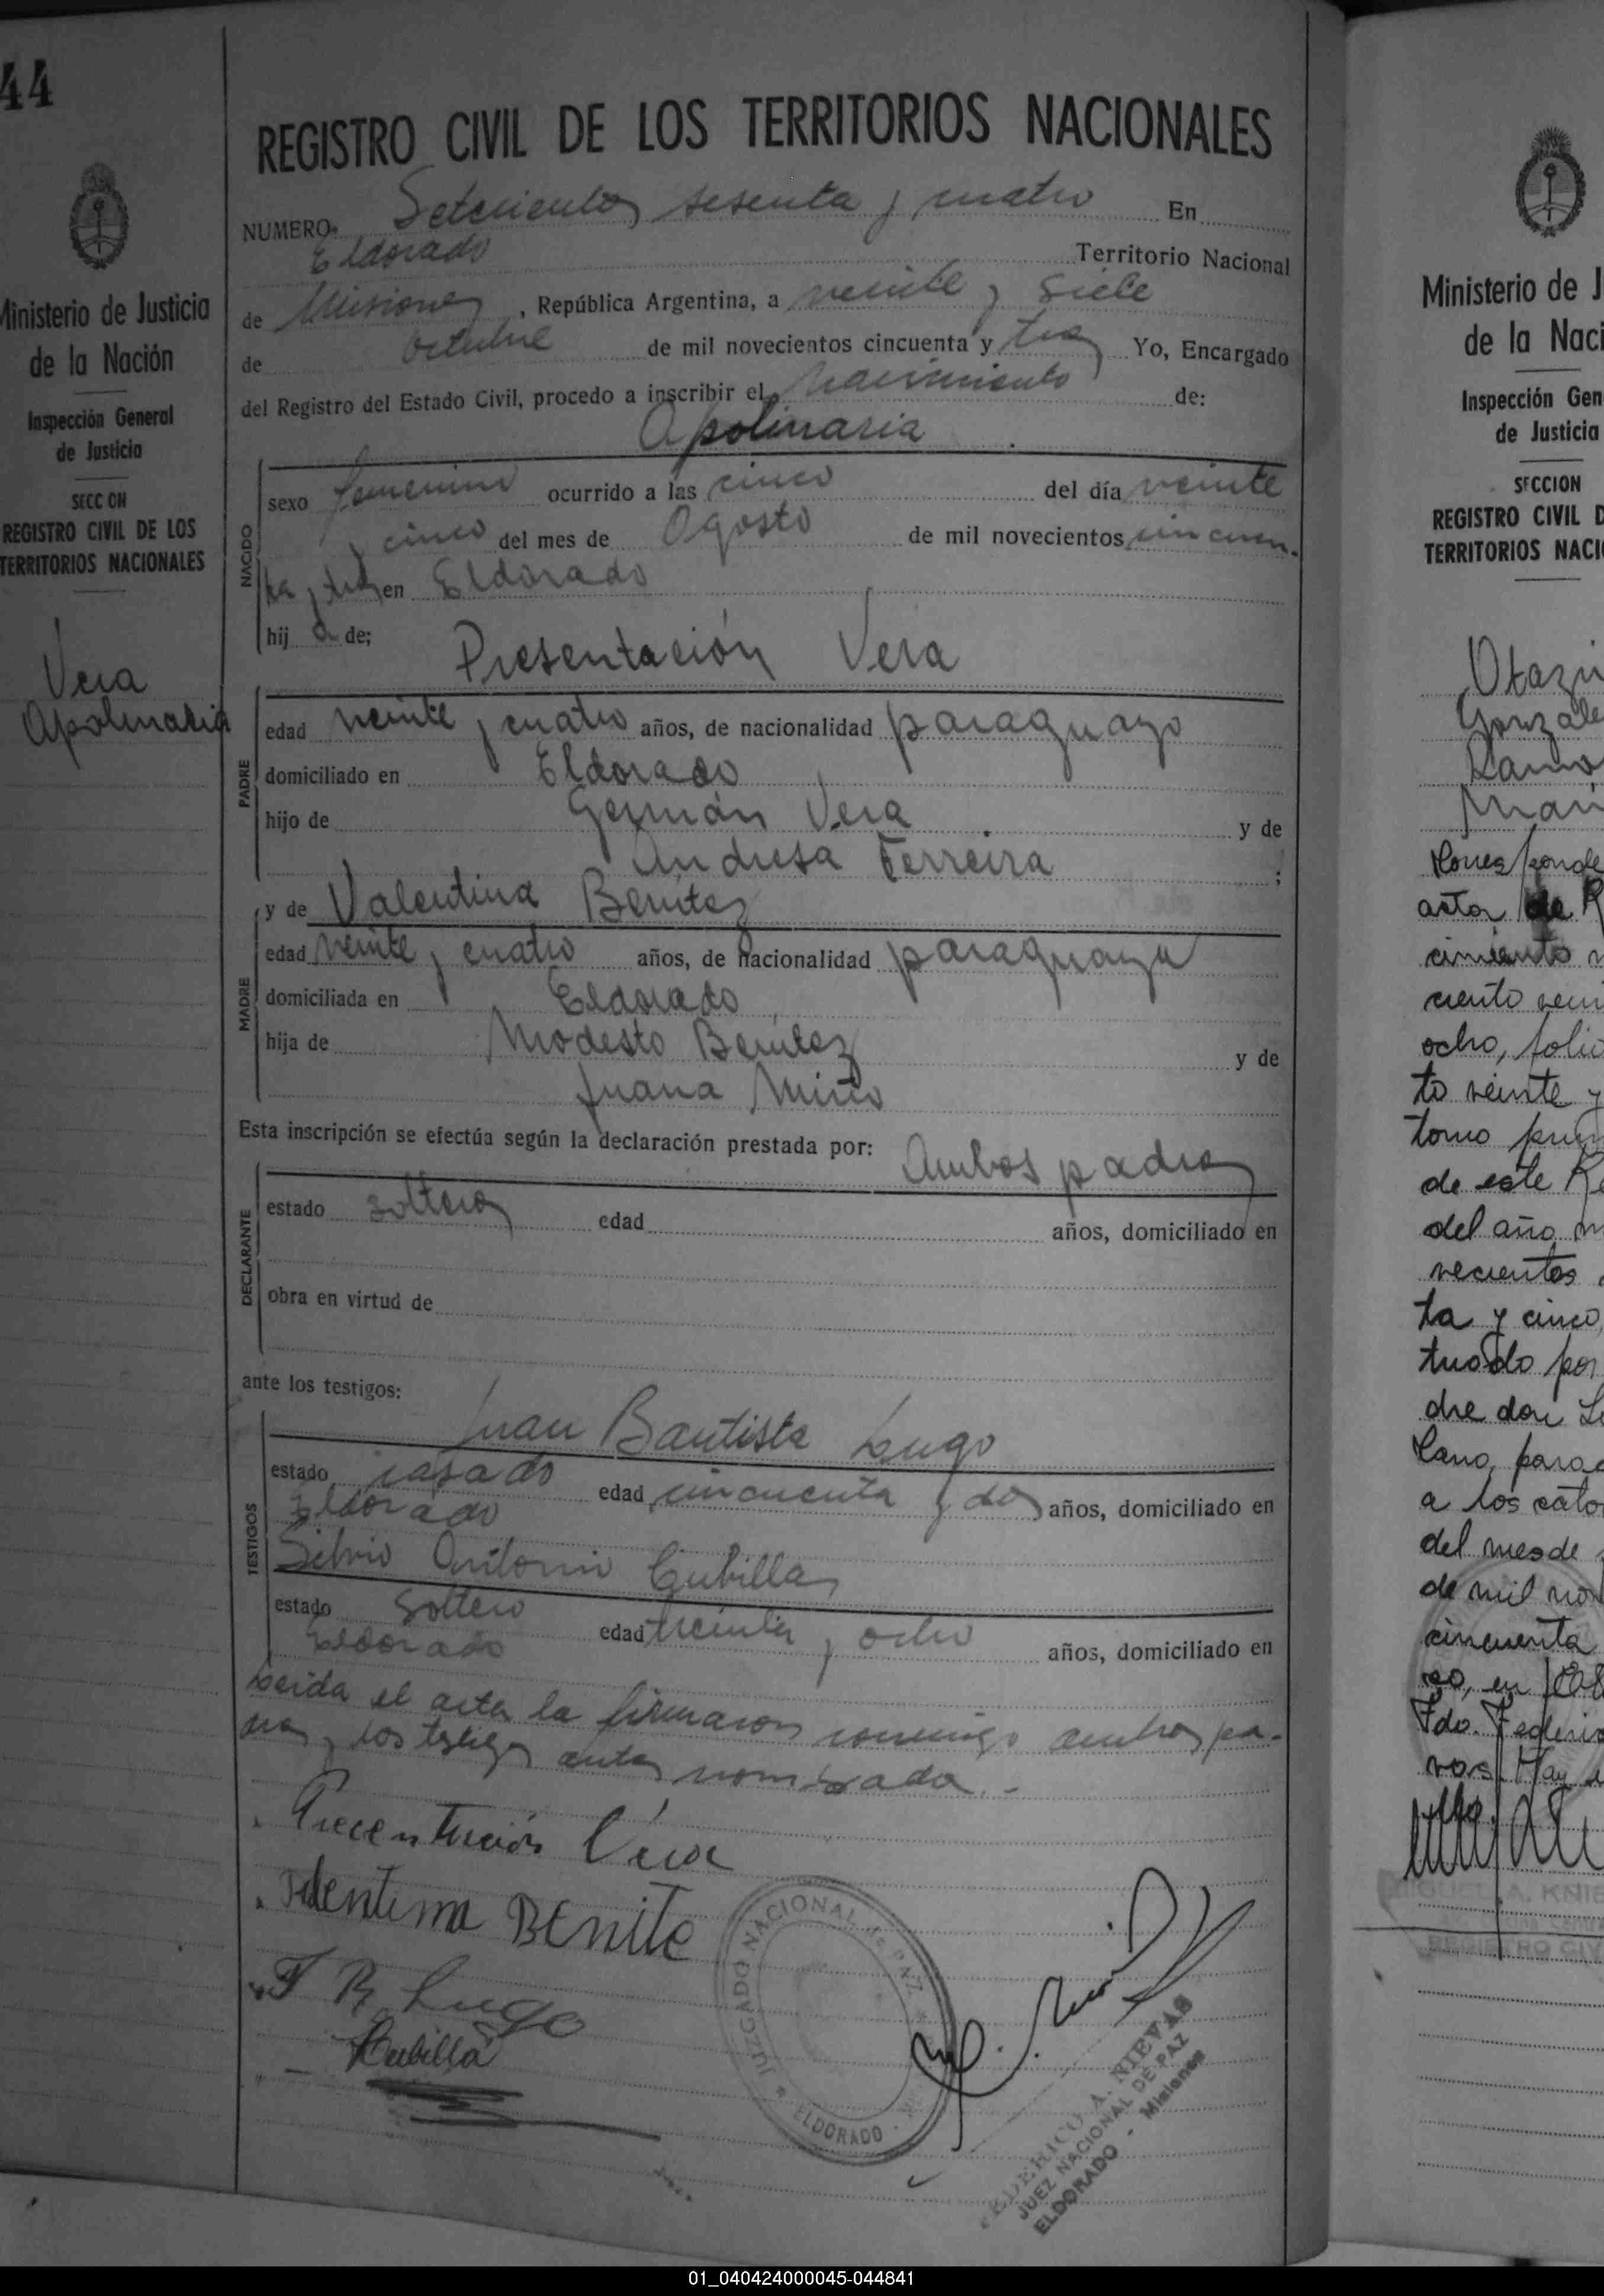 44
Ministerio de Justicia
de la Nación
Inspección General
de Justicia
SECCION
REGISTRO CIVIL DE LOS
TERRITORIOS NACIONALES
Vera
Apolinaria
REGISTRO CIVIL DE LOS TERRITORIOS NACIONALES
NUMERO Setecientos sesenta y cuatro En
Eldorado Territorio Nacional
de Misiones, República Argentina, a veinte y siete
de octubre de mil novecientos cincuenta y tres Yo, Encargado
del Registro del Estado Civil, procedo a inscribir el nacimiento de:
Apolinaria
NACIDO
sexo femenino ocurrido a las cinco del día veinte
y cinco del mes de Agosto de mil novecientos cincuen-
ta y tres en Eldorado
hij a de;
Presentación Vera
PADRE
edad veinte y cuatro años, de nacionalidad paraguayo
domiciliado en Eldorado
hijo de Germán Vera y de
Andresa Ferreira ;
y de Valentina Benitez
MADRE
edad veinte y cuatro años, de nacionalidad paraguaya
domiciliada en Eldorado
hija de Modesto Benitez y de
Juana Miño
Esta inscripción se efectúa según la declaración prestada por: Ambos padres
DECLARANTE
estado solteros edad años, domiciliado en
obra en virtud de
ante los testigos:
Juan Bautista Lugo
TESTIGOS
estado casado edad cincuenta y dos años, domiciliado en
Eldorado
Silvio Antonio Cubillas
estado soltero edad treinta y ocho años, domiciliado en
Eldorado
Leida el acta la firmaron conmigo ambos pa-
dres y los testigos antes nombrados.-
Precentación Vera
Valentina BEnite
J B Lugo
Cubilla
JUZGADO NACIONAL de PAZ
ELDORADO
FEDERICO A. NIEVAS
JUEZ NACIONAL DE PAZ
ELDORADO - Misiones
Ministerio de J
de la Naci
Inspección Gen
de Justicia
SECCION
REGISTRO CIVIL D
TERRITORIOS NACI
Otazu
Gonzále
Ramo
Mar
Corresponde
acta de R
cimiento n
ciento vein
ocho, folio
to veinte y
tomo prim
de este Re
del año m
vecientos
ta y cinco,
tuado por
dre don
lano, para
a los cato
del mes de
de mil nov
cincuenta
co, en
Fdo. Federic
vas. Hay
MIGUEL A. KNIE
REGISTRO CIV
01_040424000045-044841